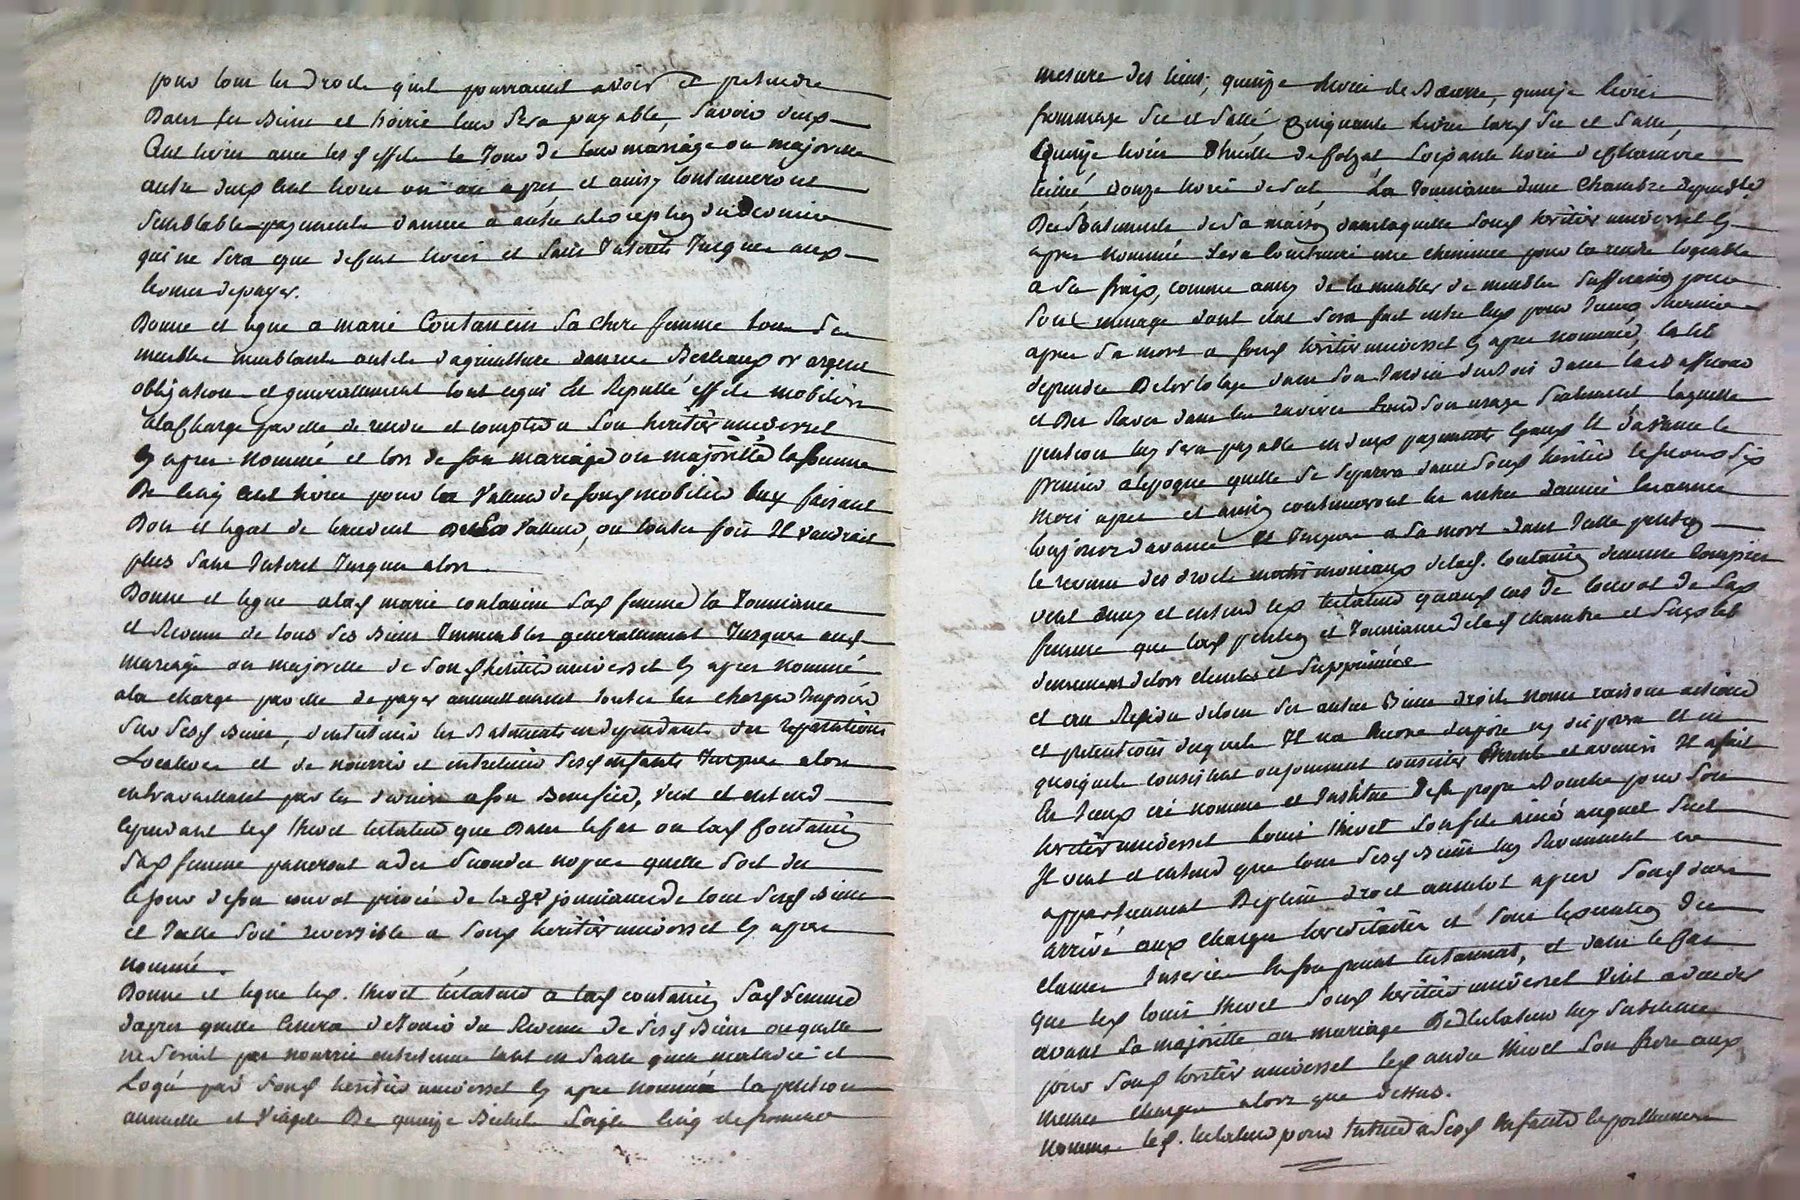 pour tous les droits quils pourraient avoir et pretendre
Dans ses Biens et hoirie leur sera payable, savoir deux
Cent livres avec lesd effets le Jour de leur mariage ou majorité
autre deux cent livres un an apres, et ainsy Continueront
semblable payements d'année a autre a lexception du Dernier
qui ne sera que de livres et sans Interets Jusques aux
termes depayer.
Donne et legue a marie Contancin sa chere femme tous ses
meubles meublants outils d'agriculture danrées Bestiaux or argent
obligations et generallement tout cequi Est Reputté effets mobiliers
alaCharge par elle de rendre et compter a son heritier universel
Cy apres nommé et lors de son mariage ou majorité la somme
De Cinq Cent livres pour la Valleur desond mobilier luy faisant
Don et legat de lexcedent De La Valleur, ou toutes fois Il vaudrait
plus sans Interet Jusques alors.
Donne et legue alad marie contancin sad femme la Jouissance
et Revenu de tous ses Biens Immeubles generallement Jusques aud
mariage ou majorité de sond heritier universel Cy apres nommé
ala charge par elle de payer annuellement toutes les charges Imposées
sur sesd Biens, d'entretenir les Batiments independants des reparations
Locatives et de nourrir et entretenir sesd enfants Jusques alors
entravaillant par les derniers a son Benefice, veut et entend
cependant led thivet testateur que Dans lecas ou lad Contancin
sad femme passerait a des secondes nopces quelle soit des
lejour deson convol privée de la jouissance de tous sesd Biens
et quelle soit reversible a sond heritier universel Cy apres
nommé.
Donne et legue led. thivet testateur a lad contancin sad femme
d'apres quelle Cessera deJouir du Revenu de sesd Biens ou quelle
ne serait pas nourrie entretenue tant en santé quen maladie et
Logée par sond heritier universel Cy apres nommé la pention
annuelle et Viagere De quinze Bichets Soigle Cinq defroment
mesure des lieux, quinze livres de Beurre, quinze livres
frommage sec et sallé, Cinquante livres lard sec et sallé,
quinze livres Dhuille de soixante livres de Chanvre
douze livres de sel, La Jouissance dune Chambre dependte
Des Batiments de sa maison danslaquelle sond heritier universel Cy
apres nommé sera Construire une cheminée pour la rendre logeable
a ses frais, comme aussy de la meubler de meubles suffisants pour
son menage dont etat sera fait entre eux pour Iceux
apres sa mort a sond heritier universel Cy apres nommé,
deprendre Deslortolage dans son Jardin du Bois dans
et Des Raves dans les ravieres pour son usage seulement laquelle
pention luy sera payable en deux payements Egaux Et d'avance le
premier a lepoque quelle se separera davec sond heritier le second six
mois apres et ainsy continueront les autres dannée enannée
toujours davance Et Jusques a sa mort dans Icelle pention
le revenu des droits matrimoniaux delad. Contancin demeure Compris
veut aussy et entend led testateur quaud cas de Convol de sad
femme que lad pention et Jouissance delad chambre et
demeurent deslors eteintes et supprimées
et au Residu detous ses autres Biens droits noms raisons actions
et pretentions desquels Il na encore disposé ny disposera et en
quoiquils consistent oupourraient consister presents et avenirs Il afait
De Iceux créé nommé et Institué Desa propre Bouche pour son
heritier universel Louis thivet son fils ainé auquel seul
Il veut et entend que tous sesd Biens luy Reviennent ou
appartiennent De plein droit aussitot apres sond deces
arrivé aux charges hereditaires et sous lexecution des
clauses Inserées Enson present testament, et dans le Cas
que led louis thivet sond heritier universel vint a deceder
avant sa majorité ou mariage Ledtestateur luy substitue
pour sond heritier universel led andré thivet son frere aux
memes charges alors que dessus.
nomme led. testateur pour tuteur a sesd enfants